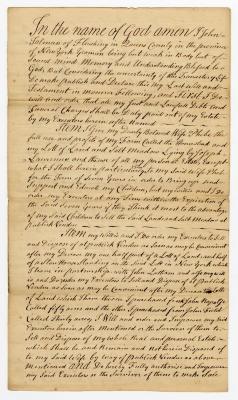 In the name of God amen I John
Talman of Flushing in Queens County in the province
of New York Yeoman being but weak in Body but of
Sound mind Memory and Understanding Blessed be
God But Considering the uncertainty of this Transitory Life
Do make publish and Declare this my Last will and
Testament in manner Following And First I Do
will and order that all my Just and Lawfull Debts and
Funeral Charges shall be Duly paid out of my Estate
by my Executors herein after named
ITEM I give my Dearly Beloved Wife the
full use and profits of my Farm Called the Homestead and
my Lott of Land and Salt Meadow Lying by
Lawrence and the use of all my personal Estate Except
what I shall herein particularly to my said wife
for the Term of Seven Years in order to Bring up and
Support and Educate my Children, but my will and I Do
order my Executors at any Time within the Expiration of
the said Seven Years if they Think it most to the advantage
of my said Children to Sell the said Lands and Salt Meadow at
publick Vendue
ITEM my will is and I Do order my Executors to Sell
and Dispose of at publick Vendue as Soon as may be Convenient
after my Decease my one half part of a Lott of Land and half
of a Store House Standing on the Said Lott in New York which
I have in partnership with John Latham and also my will
is and I order my Executors to Sell and Dispose of at publick
Vendue as Soon as may be Convenient after my Decease
of Land which I have One I purchased from John
Called fifty acres and the other I purchased from John
Called Thirty acres I Will and order and Impower my said
Executors herein after Mentioned or the Survivors of them to
Sell and Dispose of my whole Real and personal Estate
which shall be and Remain and not herein Disposed of
to my said Wife by way of publick Vendue as above
Mentioned AND Do hereby Fully authorise and Impower
my said Executors or the Survivors of them to make Sale